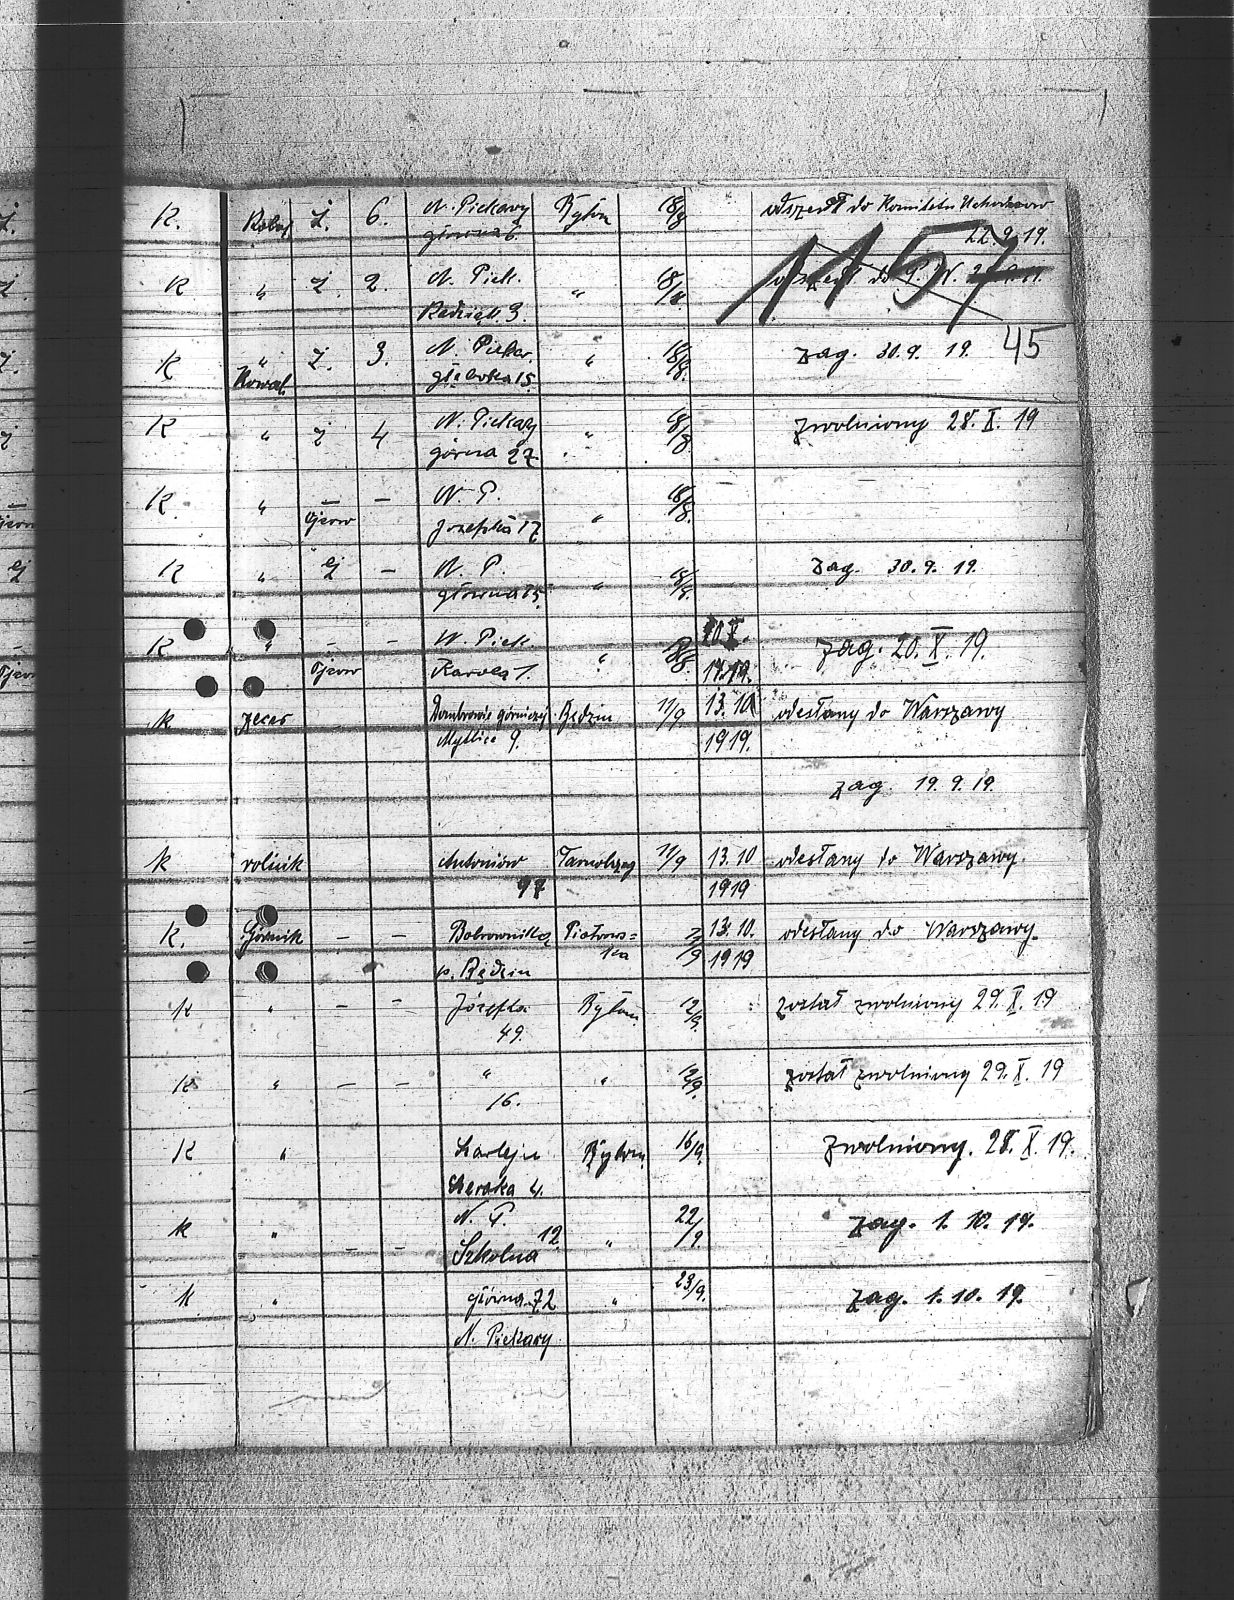 K. Robot. ż. 6. N. Piekary Bytom 18/8 odszedł do Komitetu Uchodźców
główna 6. 22.9.19.
1157
K " ż. 2. N. Piek. " 18/8
3.
45
K " ż. 3. N. Piekar. " 18/8. zag. 30.9. 19.
Kowal. 15.
K " ż 4 N. Piekary " 18/8. zwolniony 28. X. 19
górna 27
K. " – – N. P. 18/8.
Józefka 17 "
K " – N. P. zag. 30.9. 19.
" 18/8.
K " – – N. Piek. 20 X. zag. 20. X. 19.
Karola 1. " 18/8. 1919.
k zecer Dombrowa górnicza Będzin 11/9. 13.10 odesłany do Warszawy
9. 1919.
zag. 19.9.19.
k rolnik Antoniów Tarnobrzeg 11/9 13.10 odesłany do Warszawy.
97 1919
K. Górnik – – Bobrowniki Piotrows= 13.10. odesłany do Warszawy.
p. Będzin ka 1919
K " – – Józefka Bytom 12/9. został zwolniony 29. X. 19
49.
K " – – " " 12/9. został zwolniony 29. X. 19
16.
K " Szarlej Bytom 16/9. zwolniony. 28. X 19.
4.
k " N. P. 22/9. zag. 1. 10. 19.
– – Szkolna 12 "
K " główna 72 " 23/9. zag. 1. 10. 19.
N. Piekary